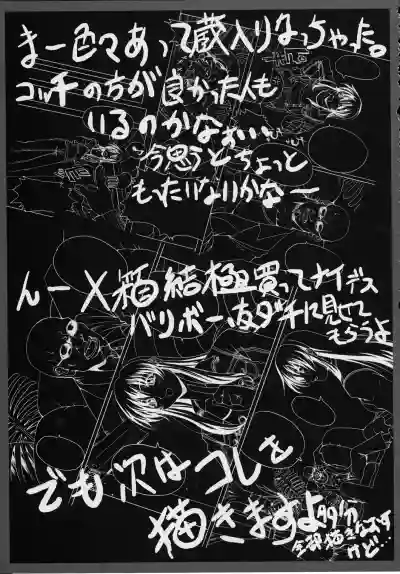 まー色々あって蔵入りなっちゃった。
コッチの方が良かった人も
いるのかなぁぃぃぃ
今思うとちょっと
もったいないかなー
んーX箱結極買ってナイデス
バリボー、友ダチに見せて
もらうよ
でも次はコレを
描きますよ多分
全部描きなおす
けど…